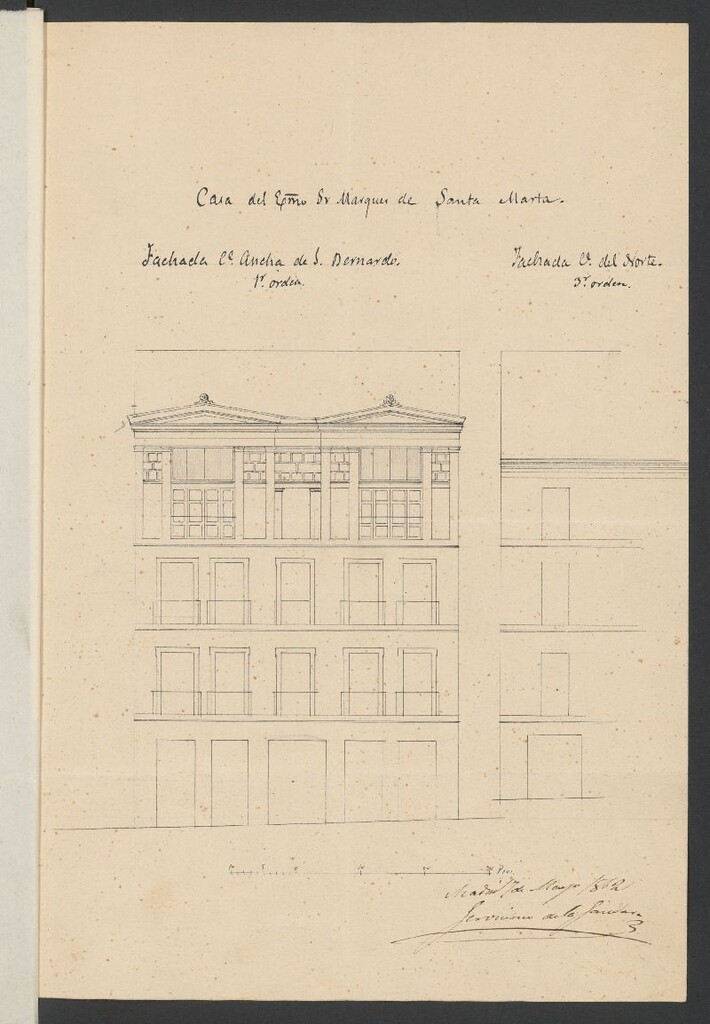 Casa del Exmo Sr Marques de Santa Marta.
Fachada C.e Ancha de S. Bernardo.
1r orden.
Fachada C.e del Norte.
3r orden.
Pies
Madrid 1º de Mayo 1862
Geronimo de la Gandara